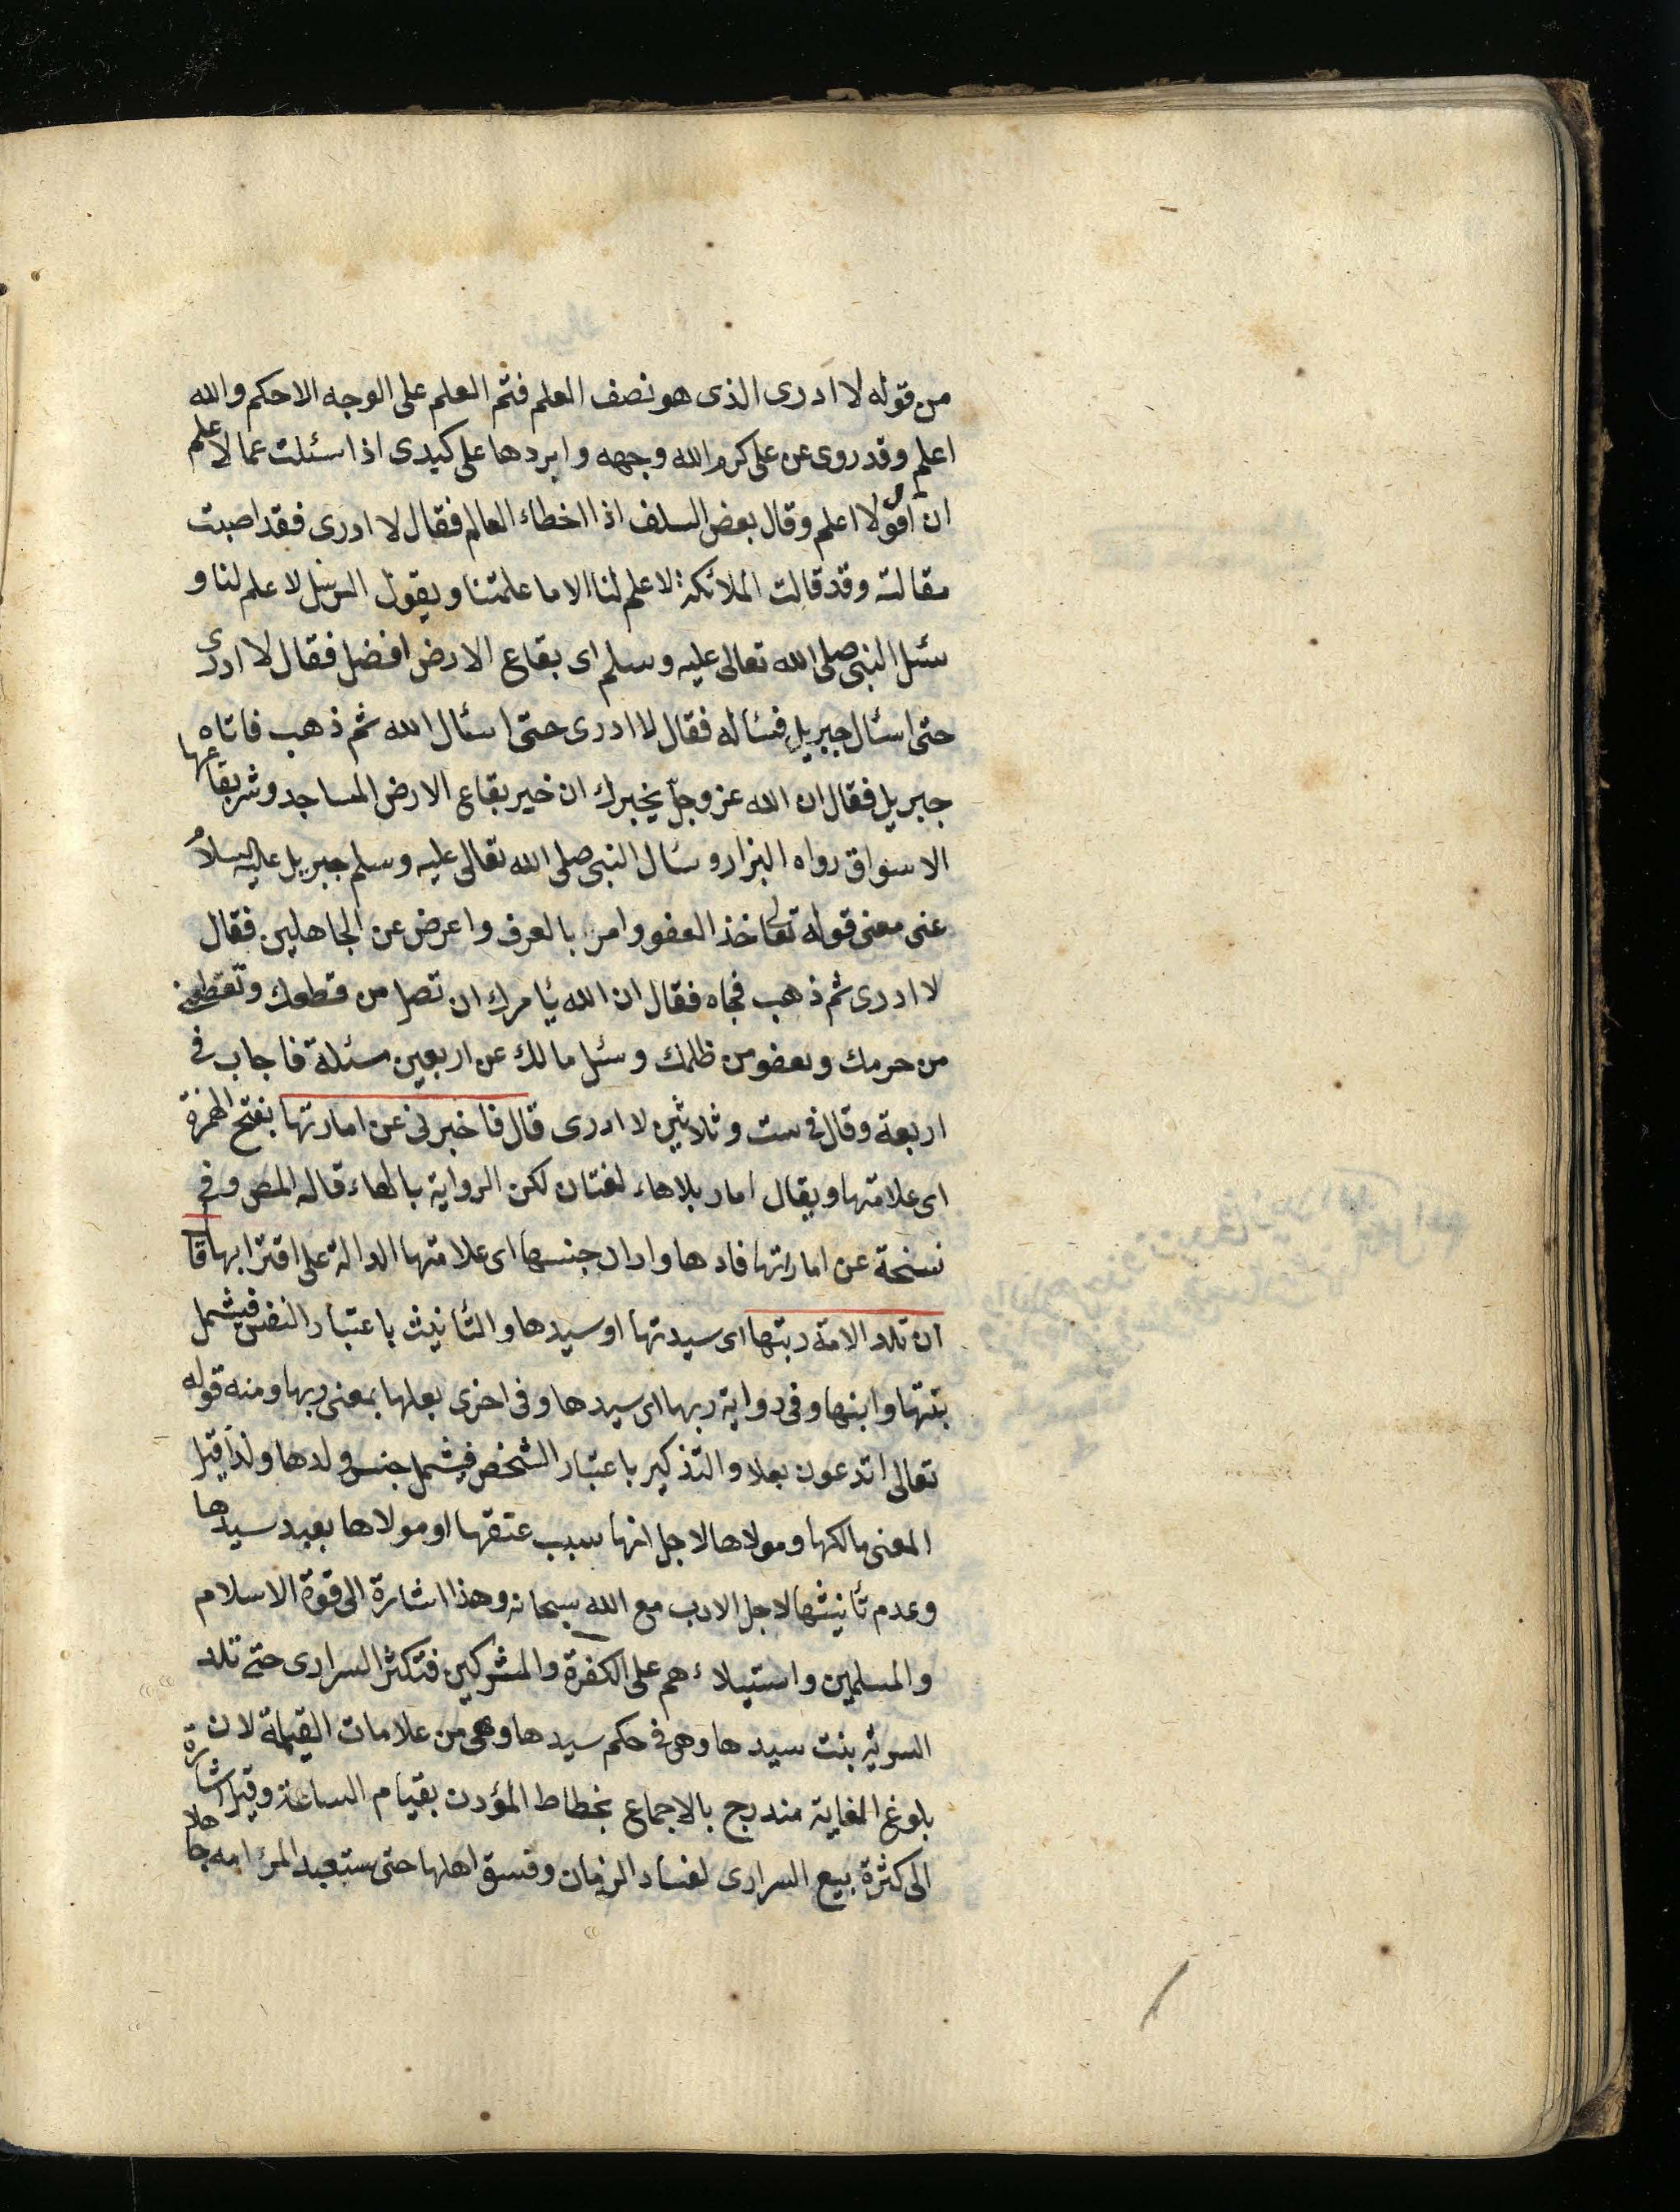 من قوله لا ادرى الذى هو نصف العلم فتم العلم على الوجه الاحكم والله
اعلم وقد روى عن على كرم الله وجهه وابردها على كبدى اذا سئلت عما لا اعلم
ان اقول لا اعلم وقال بعض السلف اذا اخطاء العالم فقال لا ادرى فقد اصبت
مقالته وقد قالت الملائكة لا علم لنا الا ما علمتنا ويقول الرسل لا علم لنا و
سئل النبى صلى الله تعالى عليه وسلم اى بقاع الارض افضل فقال لا ادرى
حتى اسئال جبريل فسئاله فقال لا ادرى حتى اسئال الله ثم ذهب فاتاه
جبريل فقال ان الله عز وجل يخبرك ان خير بقاع الارض المساجد وشر بقاعها
الاسواق رواه البزار وسئال النبى صلى الله تعالى عليه وسلم جبريل عليه السلام
عنى معنى قوله تعالى خذ العفو وامر بالعرف واعرض عن الجاهلين فقال
لا ادرى ثم ذهب فجاه فقال ان الله يأمرك ان تصل من قطعك وتعطى
من حرمك وتعفو من ظلمك وسئل مالك عن اربعين مسئلة فاجاب فى
اربعة وقال فى ست وثلاثين لا ادرى قال فاخبرنى عن امارتها بفتح الهمزة
اى علامتها ويقال امار بلا هاء لغتان لكن الرواية بالهاء قاله المص وفى
نسخة عن اماراتها فاد ها واراد جنسها اى علامتها الدالة على اقترابها قال
ان تلد الامة ربتها اى سيدتها او سيدها والتأنيث باعتبار النفس فيشمل
بنتها وابنها وفى رواية ربها اى سيدها وفى اخرى بعلها بمعنى ربها ومنه قوله
تعالى اتدعون بعلا والتذكير باعتبار الشخص فيشمل جنس ولدها ولذا قيل
المعنى مالكها ومولاها لاجل انها سبب عتقها او مولاها بعبد سيدها
وعدم تأنيثها لاجل الادب مع الله سبحانه وهذا اشارة الى قوة الاسلام
والمسلمين واستيلاءهم على الكفرة والمشركين فتكثر السرارى حتى تلد
السرية بنت سيدها وهى فى حكم سيدها وهى من علامات القيمة لان
بلوغ الغاية مندرج بالاجماع نخطاط المؤدن بقيام الساعة وقيل اشارة
الى كثرة بيع السرارى لفساد الزمان وفسق اهلها حتى يستعبد المرء امه جاهلا